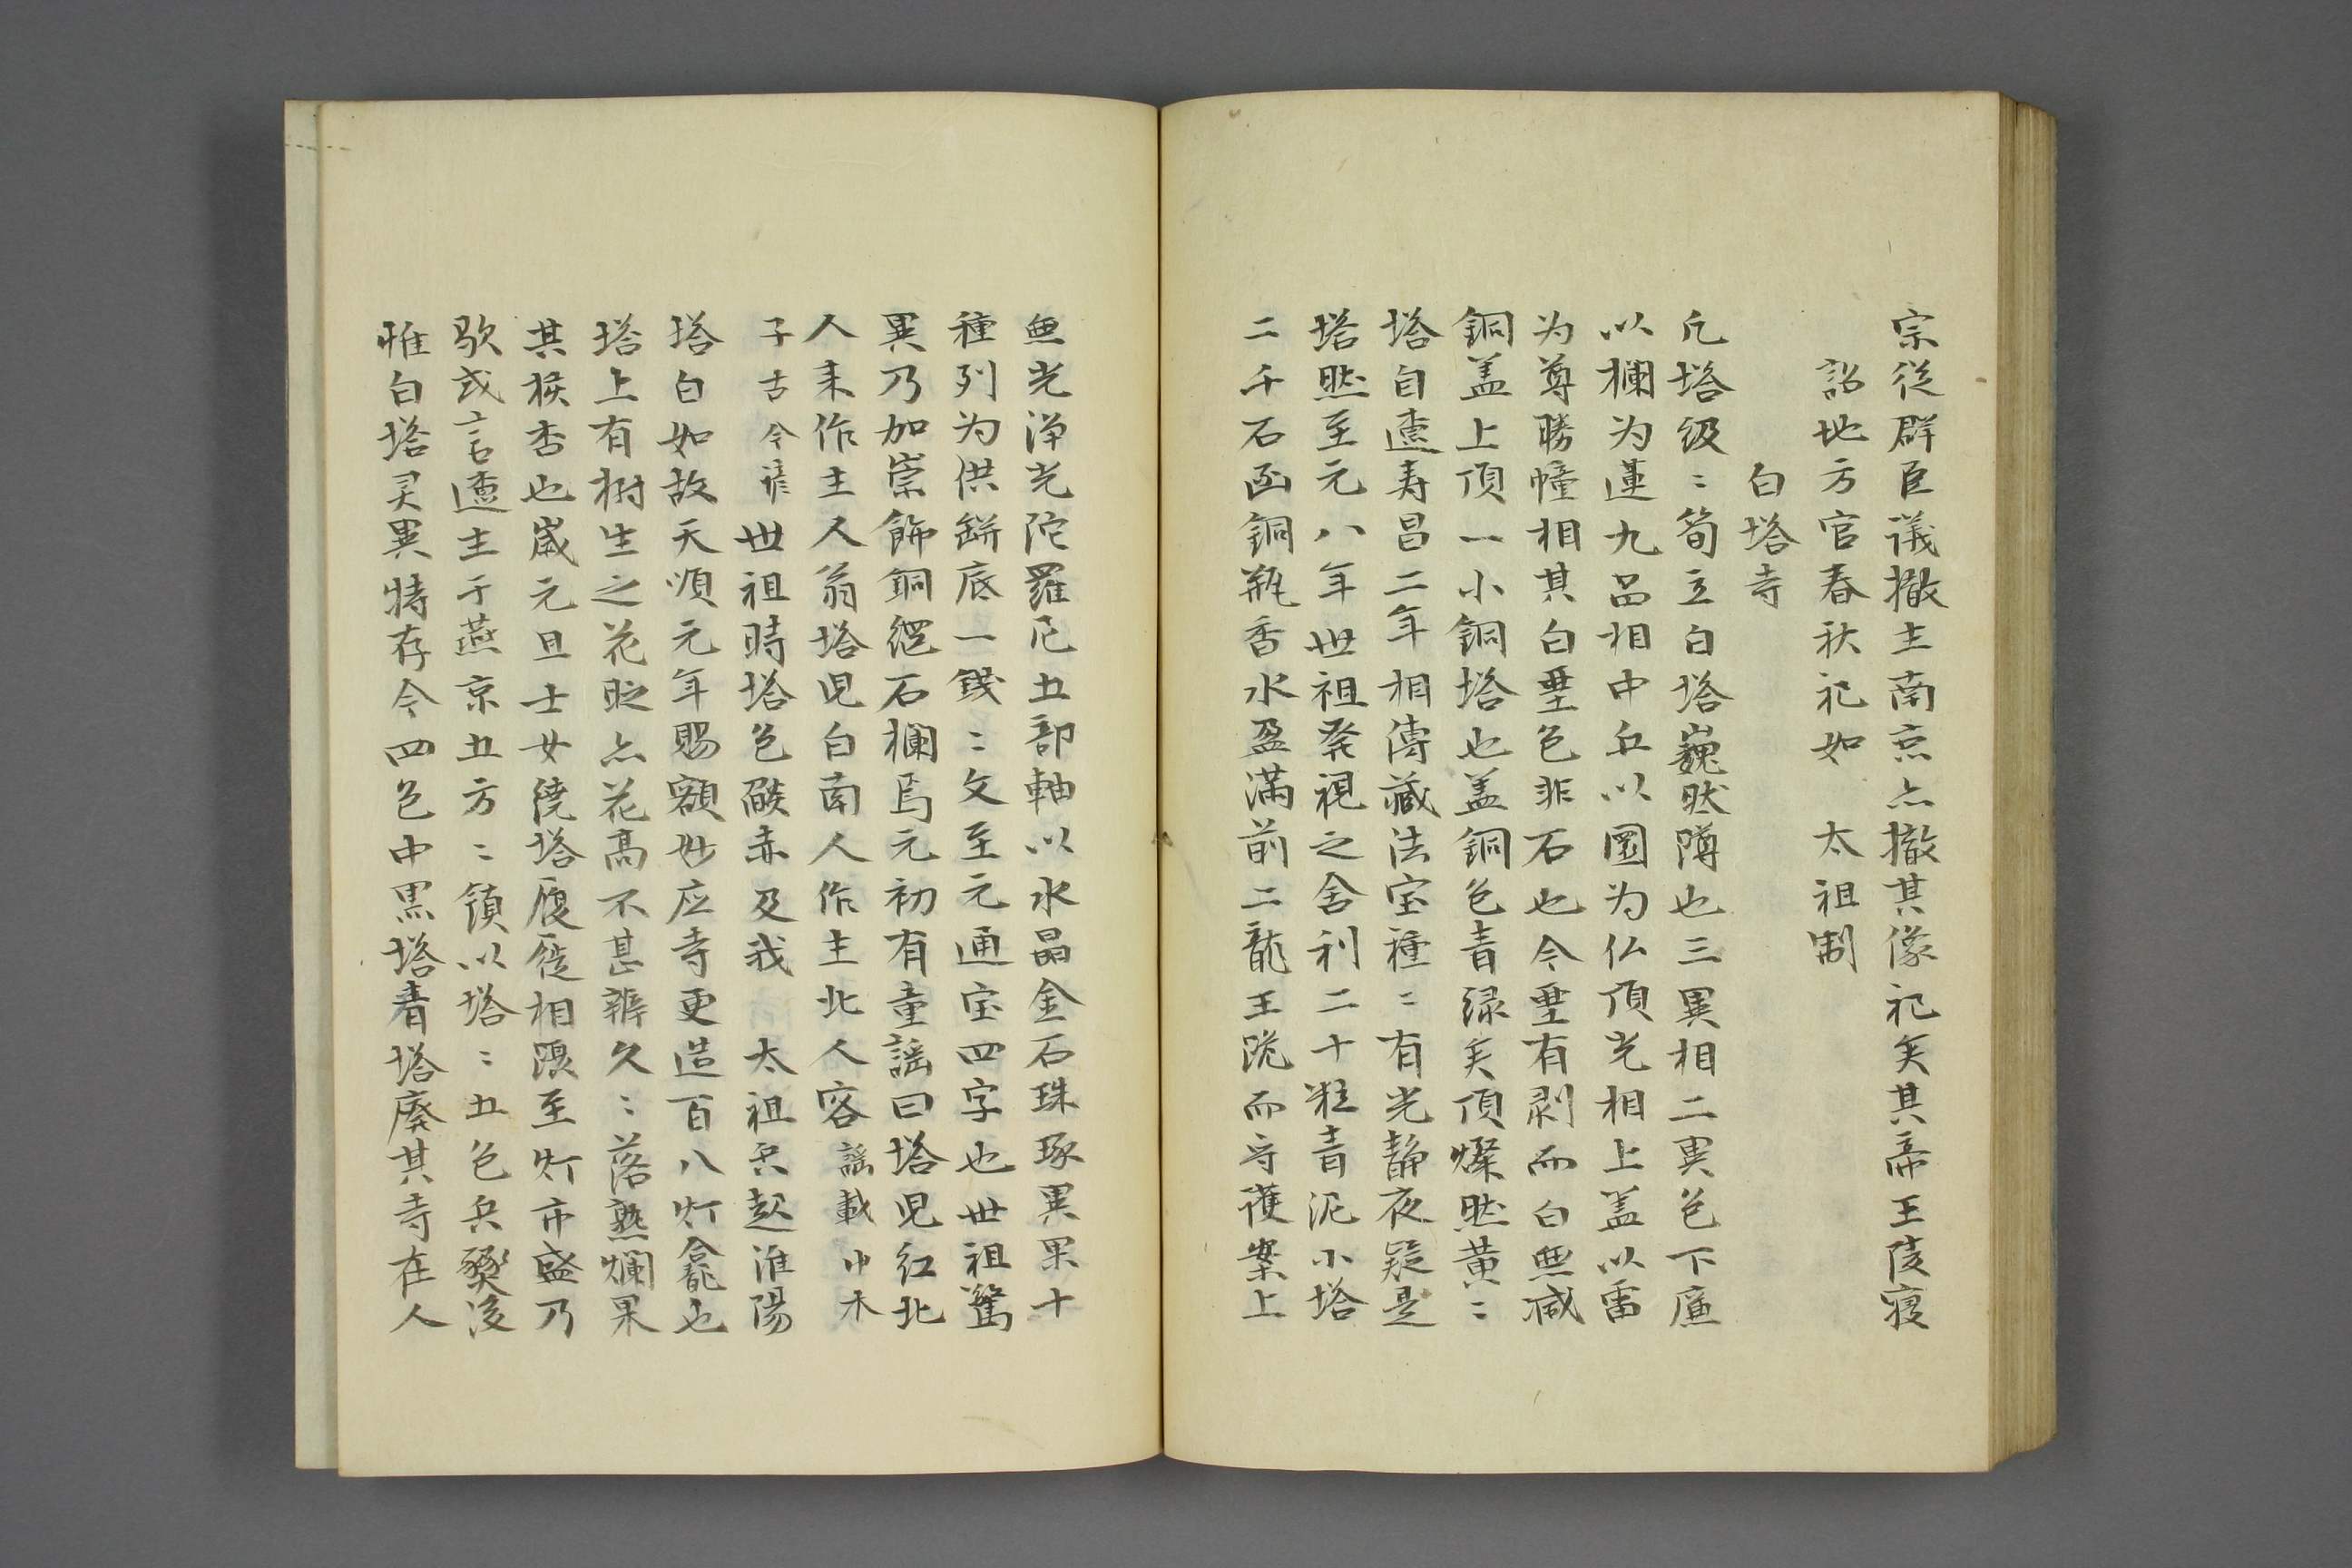 宗從群臣議撤主南京亦撤其像祀矣其帝王陵寝
詔地方官春秋祀如 太祖制
白塔寺
凡塔级〻笱立白塔巍然蹲也三異相二異色下廉
以欄为蓮九品相中丘以圜为仏頂光相上盖以雷
为尊勝幢相其白堊色非石也今堊有剥而白無减
銅盖上頂一小銅塔也盖銅色青緑矣頂燦然黄〻
塔自遼寿昌二年相傳藏法宝種〻有光静夜疑是
塔然至元八年世祖発視之舍利二十粒青泥小塔
二千石函銅瓶香水盈滿前二龍王跪而守護案上
無光淨光陀羅尼五部軸以水晶金石珠琢異果十
種列为供缾底一錢〻文至元通宝四字也世祖驚
異乃加崇飾銅網石欄焉元初有童謡曰塔児红北
人来作主人翁塔児白南人作主北人客謡載中木
子古今諺世祖時塔色燄赤及我 太祖兵起淮陽
塔白如故天順元年賜額妙应寺更造百八灯龕也
塔上有樹生之花眨亦花髙不甚辨久〻落熟爛果
其核杏也嵗元旦士女繞塔履屣相躡至灯市盛乃
歇或言遼主于燕京五方〻鎮以塔〻五色兵燹後
惟白塔灵異特存今四色中黒塔青塔廢其寺在人